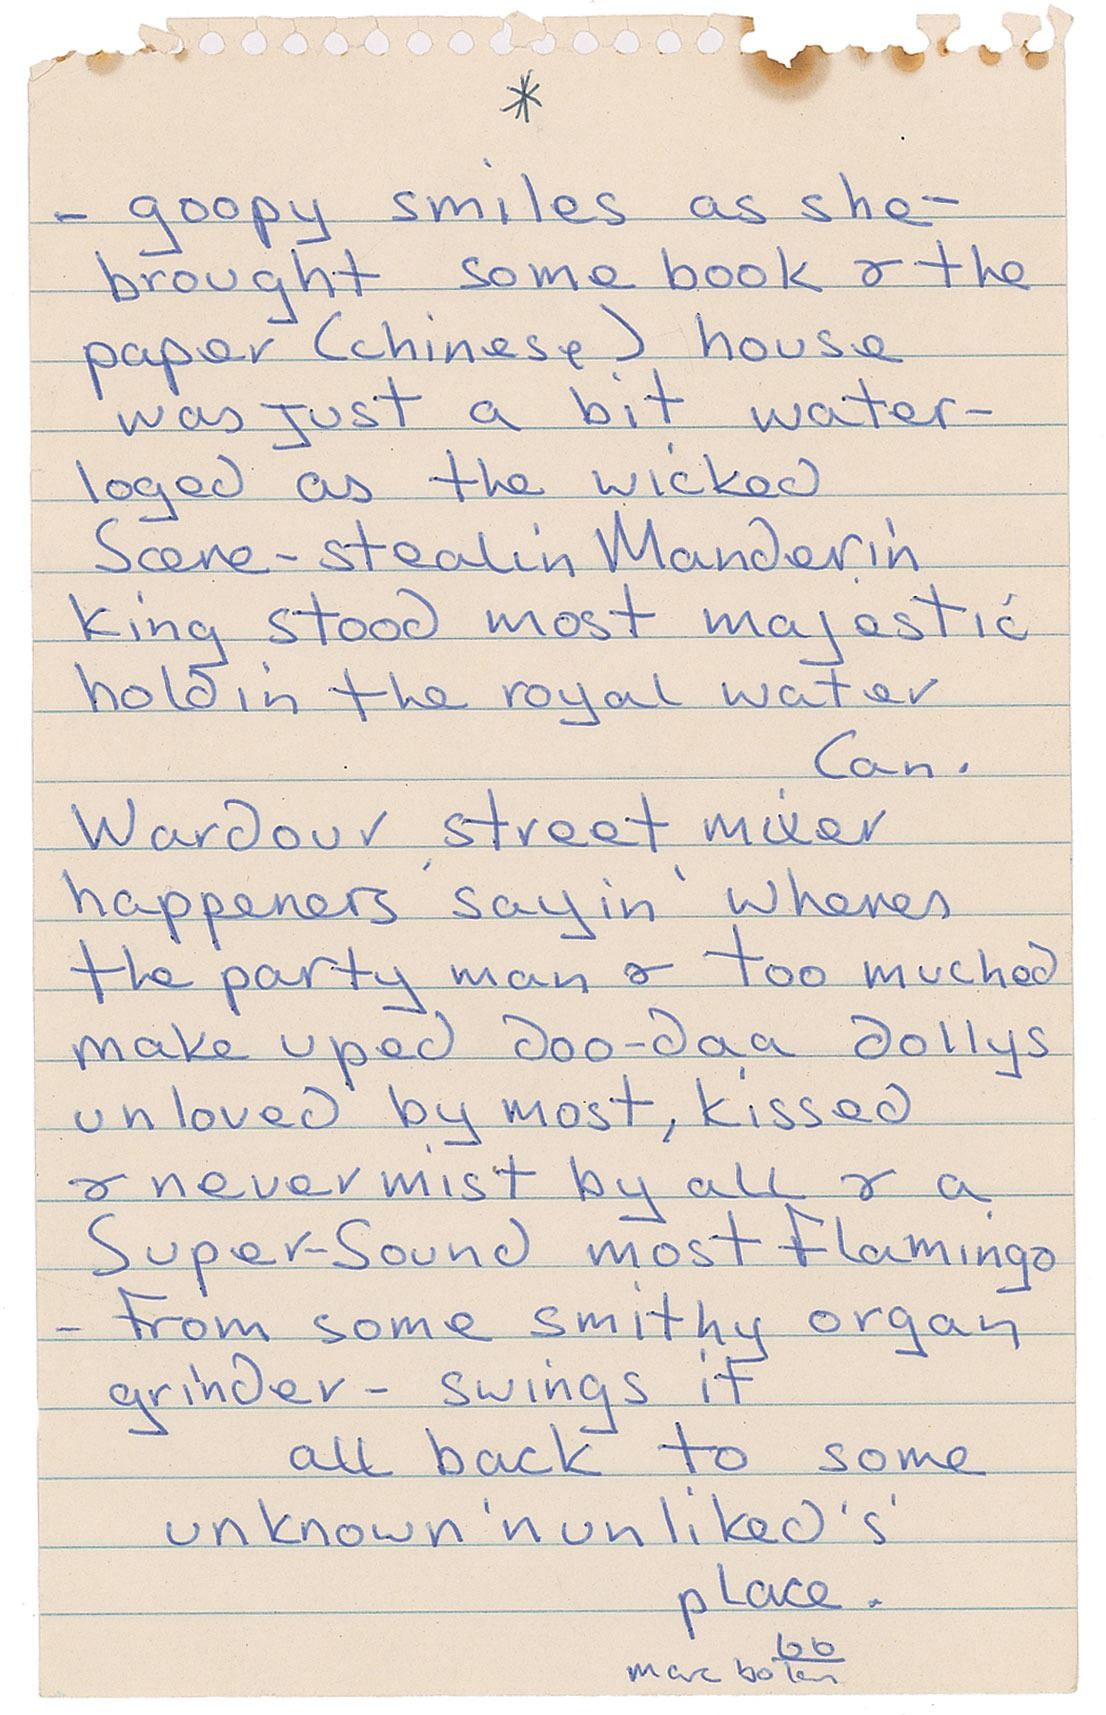 *
- goopy smiles as she-
brought some book & the
paper (chinese) house
was just a bit water-
loged as the wicked
Scene-stealin Manderin
king stood most majestic
holdin the royal water
Can.
Wardour street mixer
happeners 'sayin' wheres
the party man & too muched
make uped doo-daa dollys
unloved by most, kissed
& never mist by all & a
Super-Sound most Flamingo
- From some smithy organ
grinder - swings it
all back to some
unknown 'n unliked's'
place.
66
marc bolan